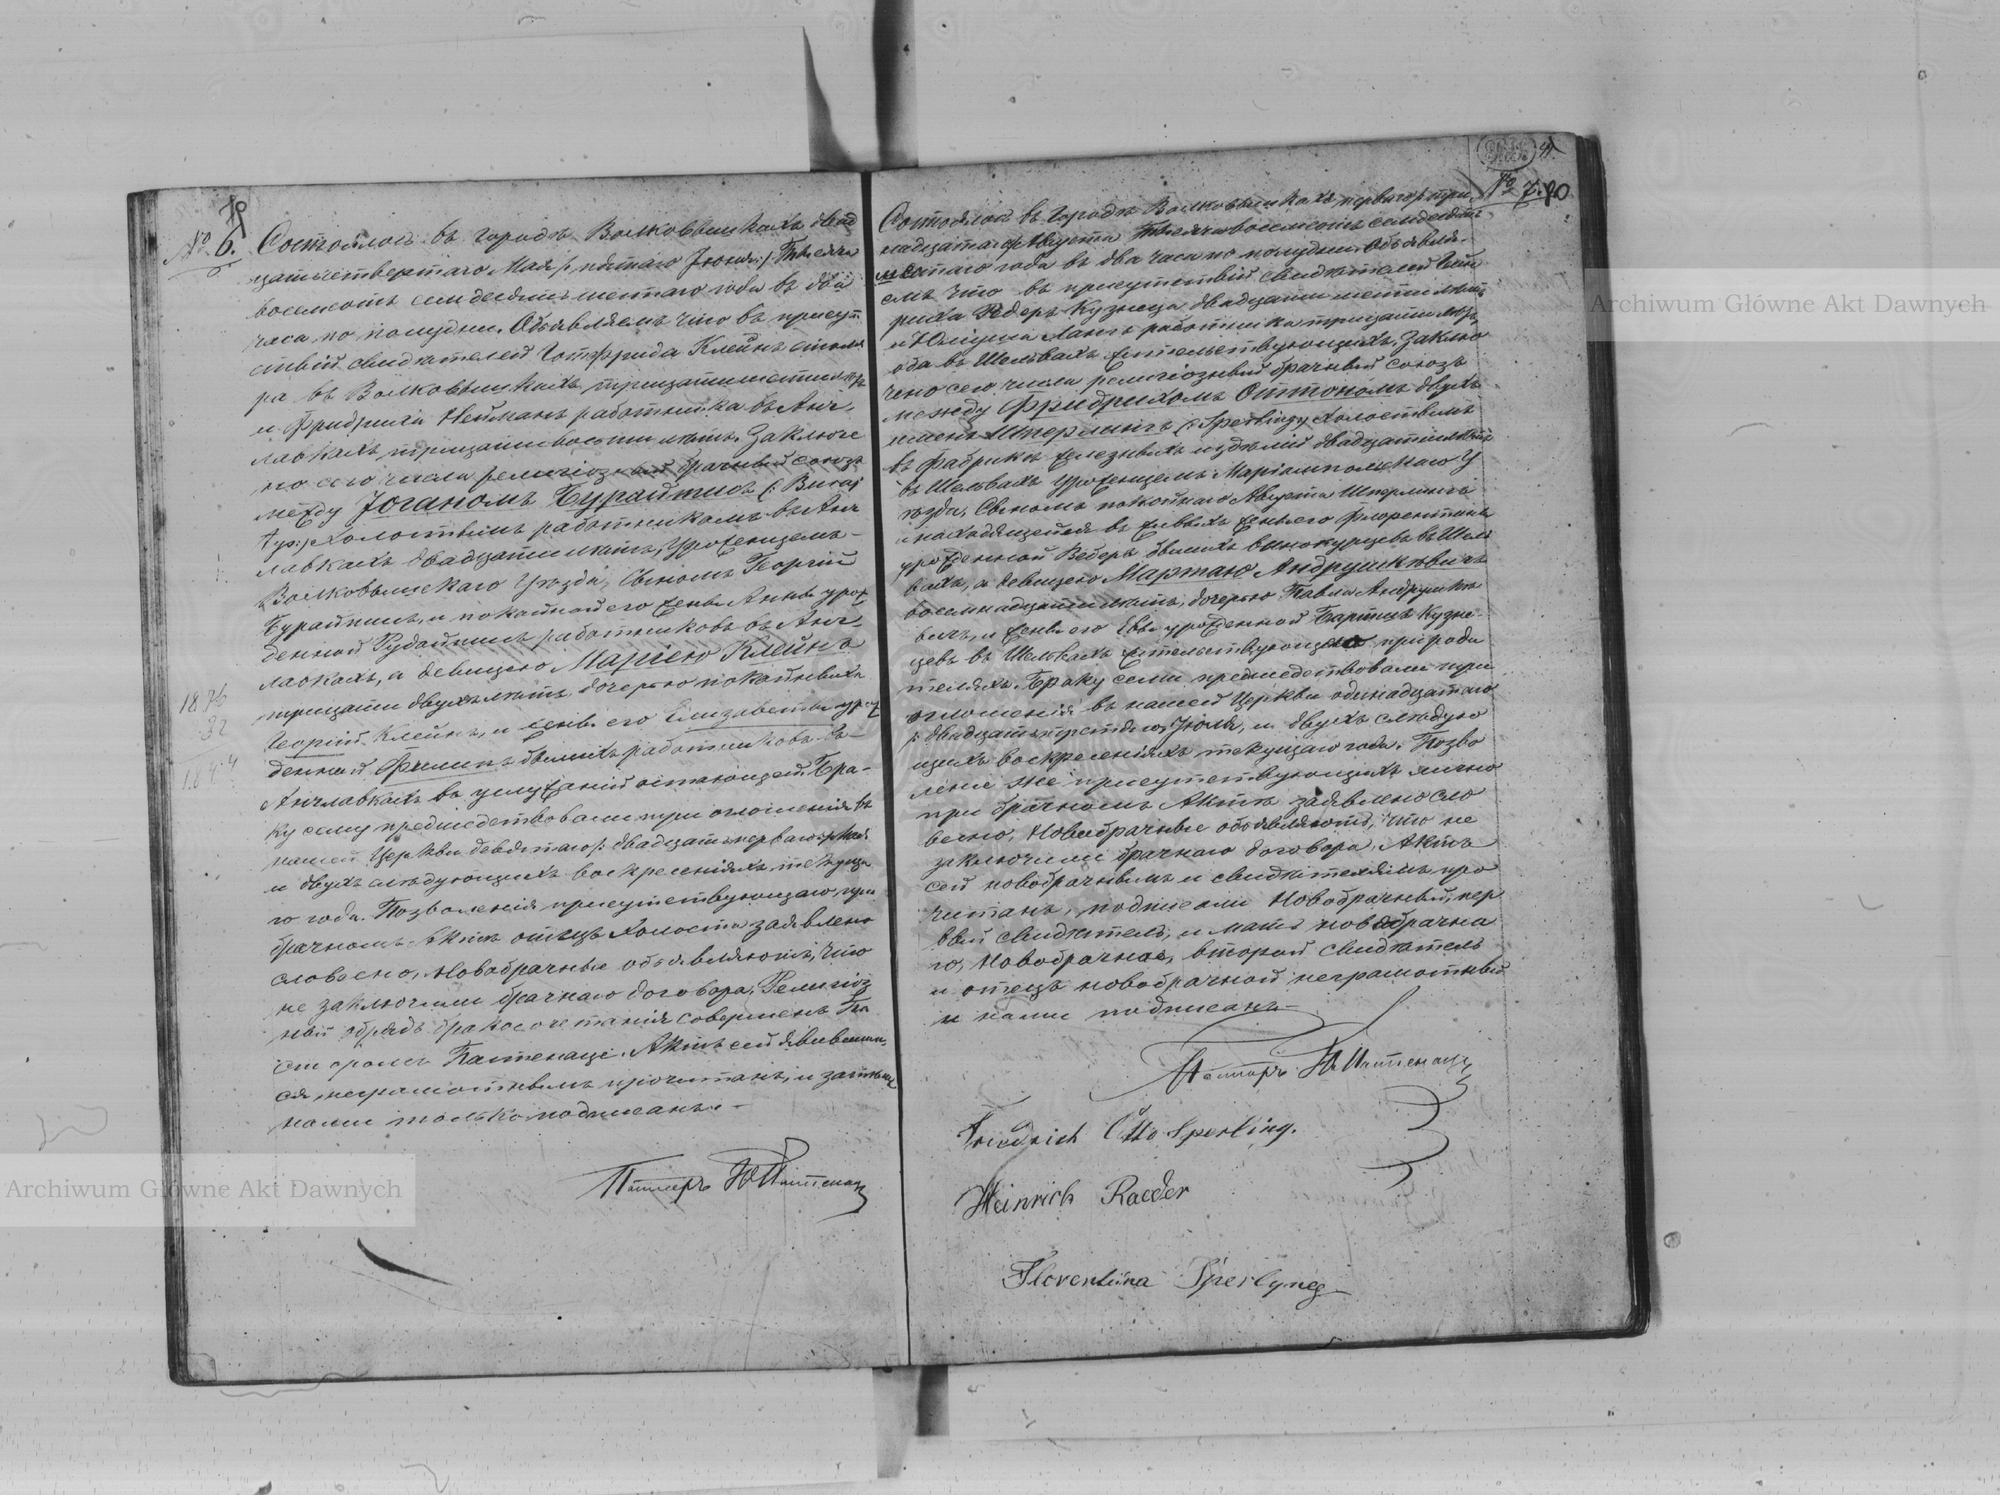 № 6.
Состоялось въ городѣ Волковышкахъ двад
цать четвертаго Мая /: пятаго Іюня :/ Тысяча
восемьсотъ семьдесятъ шестаго года въ два
часа по полудни. Объявляемъ что въ присут
ствіи свидѣтелей Готфрида Клейнъ столя
ра въ Волковышкахъ, тридцати шести лѣтъ
и Фридриха Нейманъ работника въ Анч
лавкахъ тридцати восьми лѣтъ. Заключе
но сего числа религіозный брачный союзъ
между Іоганомъ Бурайтисъ (: Burai
tys :) холостымъ работникомъ въ Анч
лавкахъ двадцати лѣтъ, уроженцемъ
Волковышскаго Уѣзда, сыномъ Георгій
Бурайтисъ, и покойной его жены Анны урож
денной Рудайтисъ работниковъ въ Анч
лавкахъ, а девицею Маріею Клейнъ
тридцати двухъ лѣтъ дочерью покойныхъ
Георгій Клейнъ, и жены его Елизаветы урож
денной Филипъ бывшихъ работниковъ въ
Анчлавкахъ въ услуженій остающей. Бра-
ку сему предшедствовали три оглошенія въ
нашей Церкви девятаго /: двадцать перваго :/ Мая
и двухъ слѣдующихъ воскресеніяхъ, текуща
го года. Позволенія присутствующаго при
брачномъ Актѣ отецъ холоста заявлено
словесно, Новобрачные объявляютъ, что
не заключили брачнаго договора, Религіоз
ный обрядъ бракосочетанія совершенъ Па
сторомъ Пастенаци. Актъ сей явившим
ся неграмотнымъ прочитанъ, и затѣмъ
нами только подписанъ. —
Пасторъ Ю Пастенаци
1876
32
1844
№ 7. 80
Состоялось въ городѣ Волковышкахъ перваго /: три
надцатаго :/ Августа Тысяча восемьсотъ семьдесятъ
шестаго года въ два часа по полудни. Объявля-
емъ что въ присутствій свидѣтелей Гейн
риха Редеръ Кузнеца двадцати шести лѣтъ
и Юліуша Лангъ работника тридцати лѣтъ
оба въ Шельвахъ жительствующихъ. Заклю
чено сего числа религіозный брачный союзъ
между Фридрихомъ Оттономъ двухъ
именъ Шперлингъ (: Sperling :) холостымъ
въ Фабрикѣ желѣзныхъ издѣлій двадцати лѣтъ
въ Шельвахъ урожденцемъ Маріампольскаго У
ѣзда, Сыномъ покойнаго Августа Шперлингъ
и находящейся въ живыхъ жены его Флорентины
урожденной Веберъ бывшихъ винокурцевъ въ Шель
вахъ, а девицею Мартою Андрушкѣвичъ
восемнадцати лѣтъ, дочерью Павла Андрушкѣ
вичъ, и жены его Евы урожденной Бартшъ Кузне-
цевъ въ Шельвахъ жительствующею при роди
теляхъ. Браку сему предшедствовали три
оглошенія въ нашей Церкви одинадцатаго
/: двадцать третьяго :/ Іюля, и двухъ слѣдую
щихъ воскресеніяхъ текущаго года. Позво
леніе же присутствующихъ лично
при брачномъ Актѣ заявлено сло
весно, Новобрачные объявляютъ, что не
заключили брачнаго договора, Актъ
сей новобрачнымъ и свидѣтелямъ про
читанъ, подписали Новобрачный, пер
вый свидѣтель, и мать новобрачна
го, Новобрачная, второй свидѣтель
и отецъ новобрачной неграмотный
и нами подписанъ —
Пасторъ Ю Пастенаци
Friedrich Otto Sperling.
Heinrich Raeder
Florentina Sperlyng
Archiwum Główne Akt Dawnych
Archiwum Główne Akt Dawnych